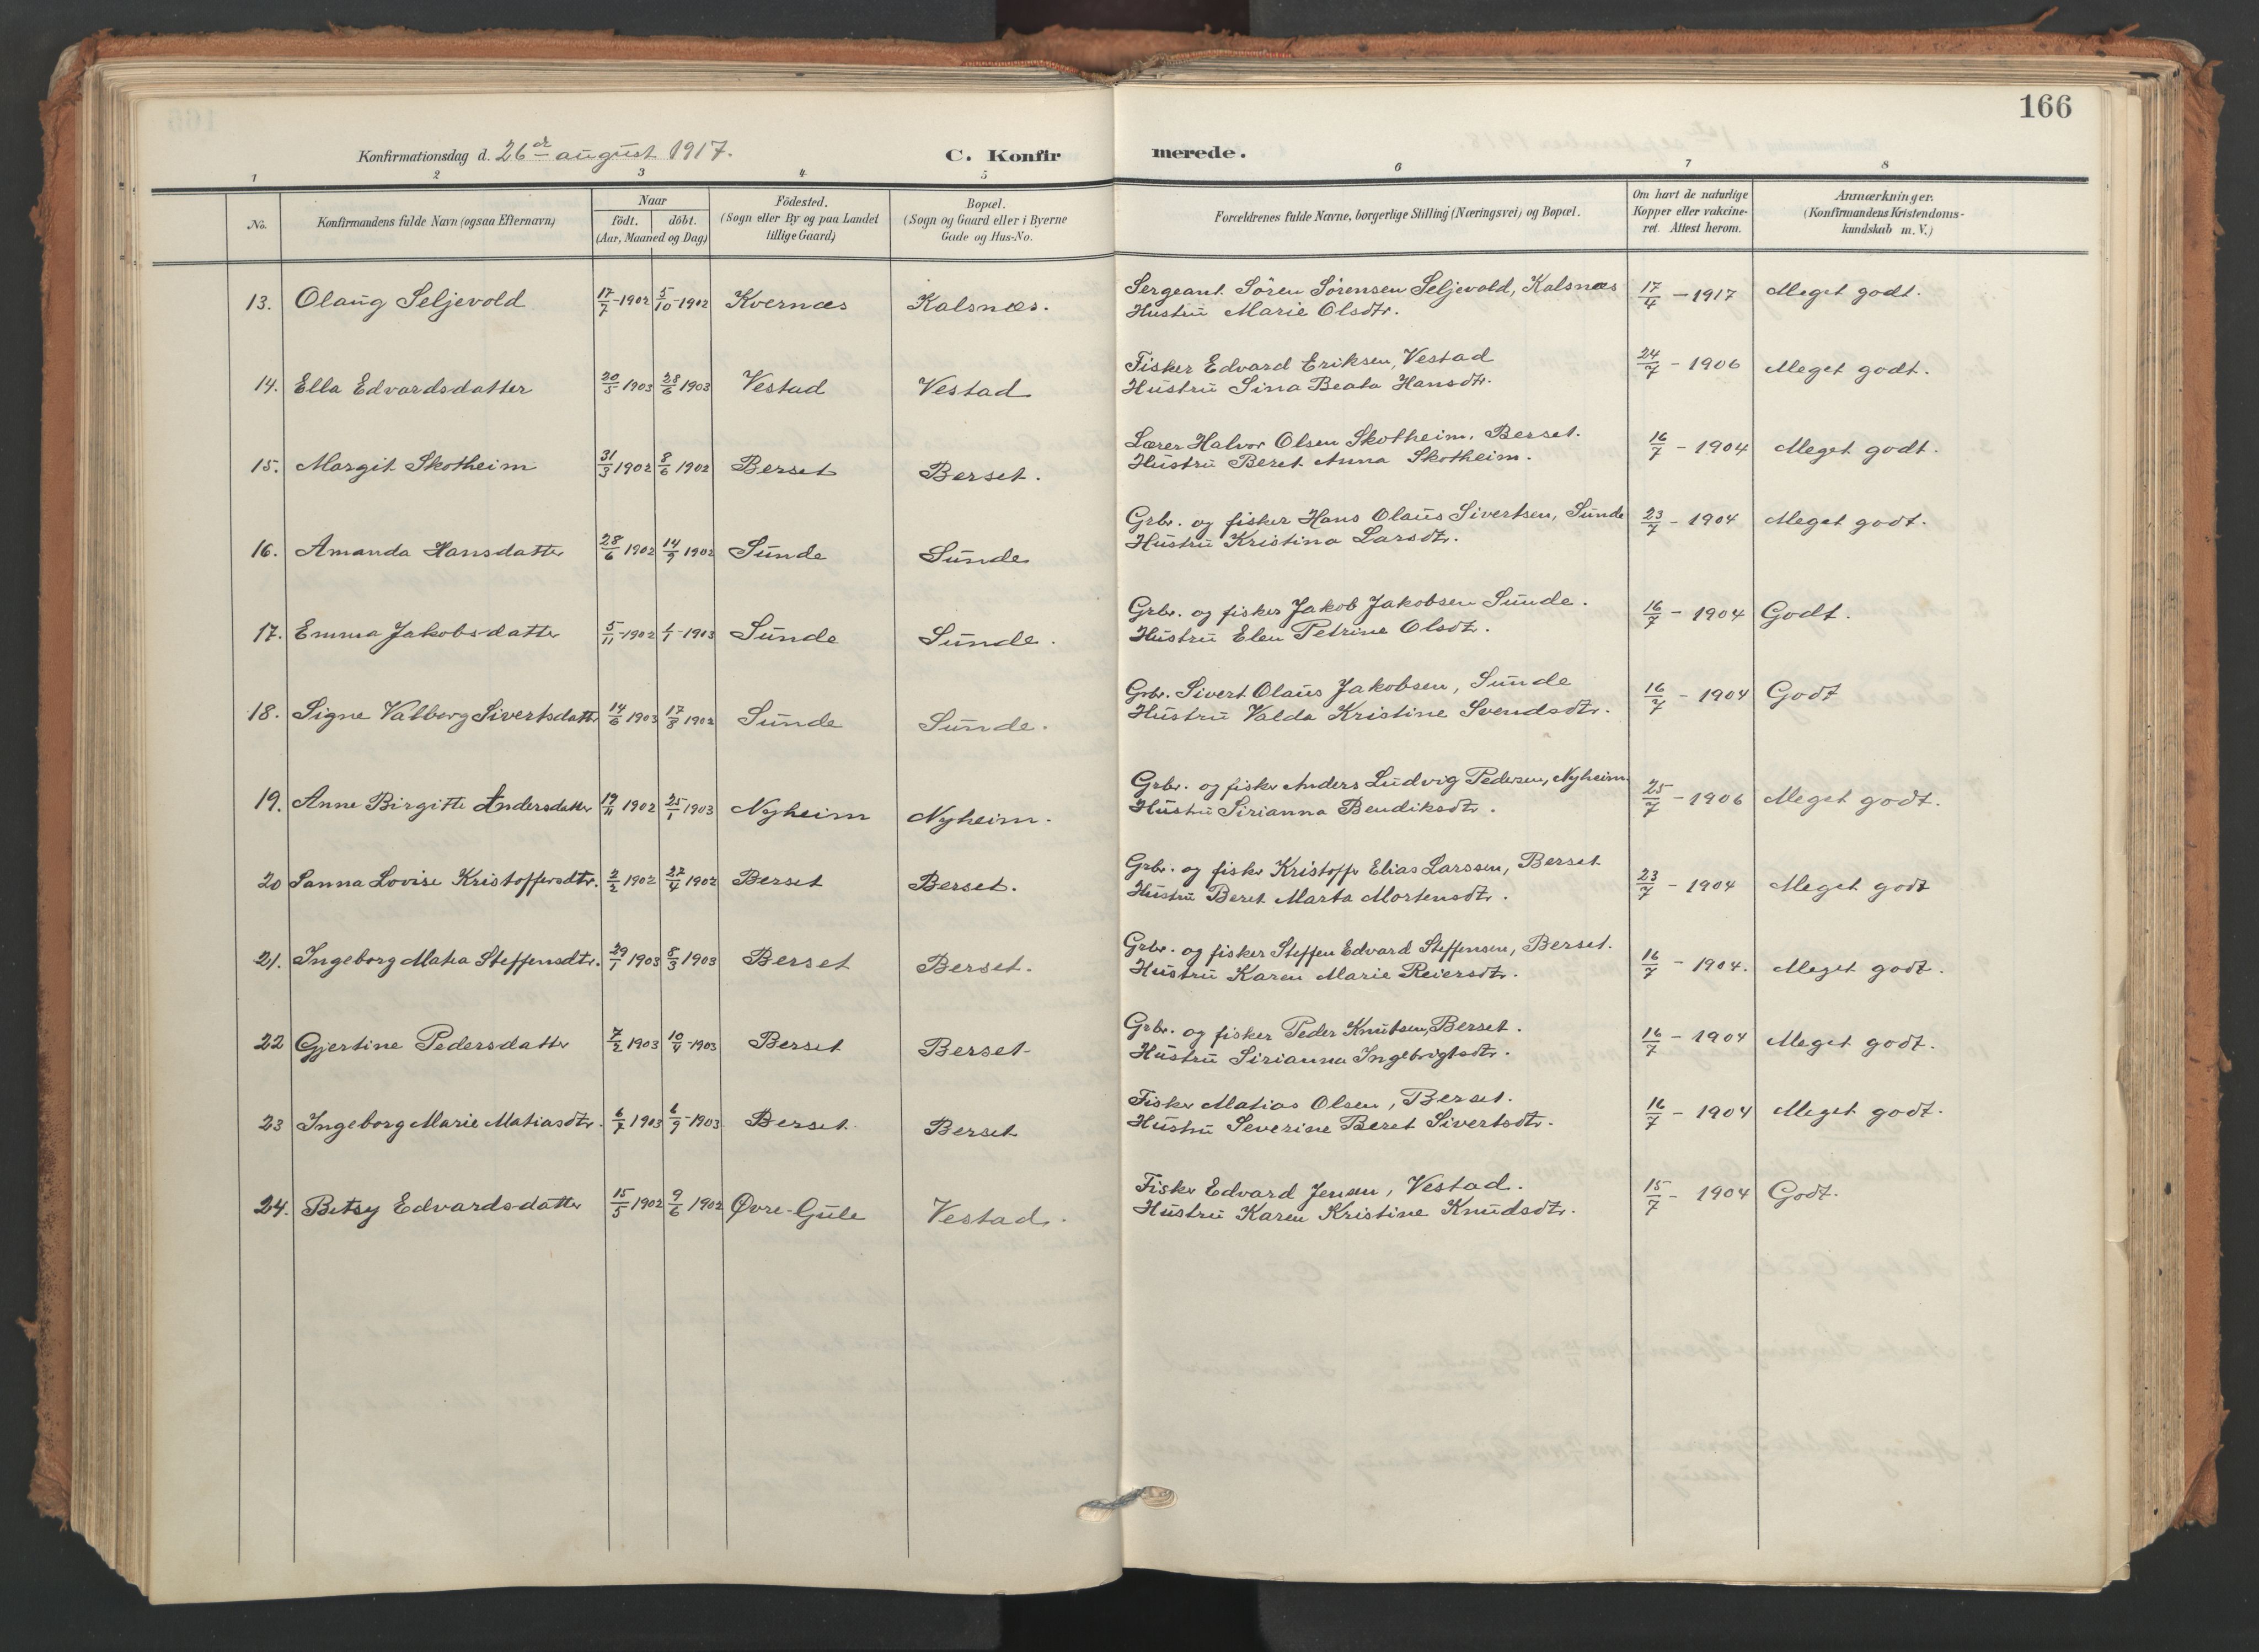 166
Konfirmationsdag d. 26de august 1917.
C. Konfirmerede.
1 2 3 4 5 6 7 8
No. | Konfirmandens fulde Navn (ogsaa Efternavn) | Naar födt. döbt. (Aar, Maaned og Dag) | Födested. (Sogn eller By og paa Landet tillige Gaard) | Bopæl. (Sogn og Gaard eller i Byerne Gade og Hus-No. | Forældrenes fulde Navne, borgerlige Stilling (Næringsvei) og Bopæl. | Om havt de naturlige Kopper eller vakcineret. Attest herom. | Anmærkninger. (Konfirmandens Kristendomskundskab m. V.)
13. Olaug Seljevold 17/7-1902 5/10-1902 Kvernæs Kalsnæs. Sergeant Sören Sörensen Seljevold, Kalsnæs 17/4 - 1917 Meget godt.
Hustru Marie Olsdtr.
14. Ella Edvardsdatter 20/5 1903 28/6 1903 Vestad Vestad Fisker Edvard Eriksen, Vestad 24/7 - 1906 Meget godt.
Hustru Sina Beata Hansdtr.
15. Margit Skotheim 31/3 1902 8/6 1902 Berset Berset. Lærer Halvor Olsen Skotheim, Berset. 16/7 - 1904 Meget godt.
Hustru Beret Anna Skotheim.
16. Amanda Hansdatter 28/6 1902 14/9 1902 Sunde Sunde Grbr. og fisker Hans Olaus Sivertsen, Sunde 23/7 - 1904 Meget godt.
Hustru Kristina Larsdtr.
17. Emma Jakobsdatter 5/11-1902 1/1-1903 Sunde Sunde. Grbr. og fisker Jakob Jakobsen Sunde. 16/7 - 1904 Godt.
Hustru Elen Petrine Olsdtr.
18. Signe Valborg Sivertsdatter 14/6 1903 17/8 1902 Sunde Sunde. Grbr. Sivert Olaus Jakobsen, Sunde 16/7 - 1904 Godt
Hustru Valda Kristine Svendsdtr.
19. Anne Birgitte Andersdatter 19/11 1902 25/1 1903 Nyheim Nyheim. Grbr. og fisker Anders Ludvig Pedersen, Nyheim. 25/7 - 1906 Meget godt.
Hustru Sirianna Bendiksdtr.
20 Sanna Lovise Kristoffersdtr. 2/2 1902 27/4 1902 Berset Berset. Grbr. og fisker Kristoffer Elias Larssen, Berset 23/7 - 1904 Meget godt
Hustru Beret Marta Mortensdtr.
21. Ingeborg Matea Steffensdtr. 29/1 1903 8/3 1903 Berset Berset. Grbr. og fisker Steffen Edvard Steffensen, Berset. 16/7 - 1904. Meget godt.
Hustru Karen Marie Reiersdtr.
22 Gjertine Pedersdatter 7/2 1903 10/4-1903 Berset Berset- Grbr. og fisker Peder Knutsen, Berset. 16/7 - 1904 Meget godt.
Hustru Sirianna Ingebrigtsdtr.
23 Ingeborg Marie Matiasdtr. 6/7 1903 6/9-1903 Berset Berset Fisker Matias Olsen, Berset. 16/7 - 1904 Meget godt.
Hustru Severine Beret Sivertsdtr.
24. Betsy Edvardsdatter 15/5 1902 9/6 1902 Øvre-Gule Vestad. Fisker Edvard Jensen, Vestad. 15/7 - 1904 Godt.
Hustru Karen Kristine Knudsdtr.